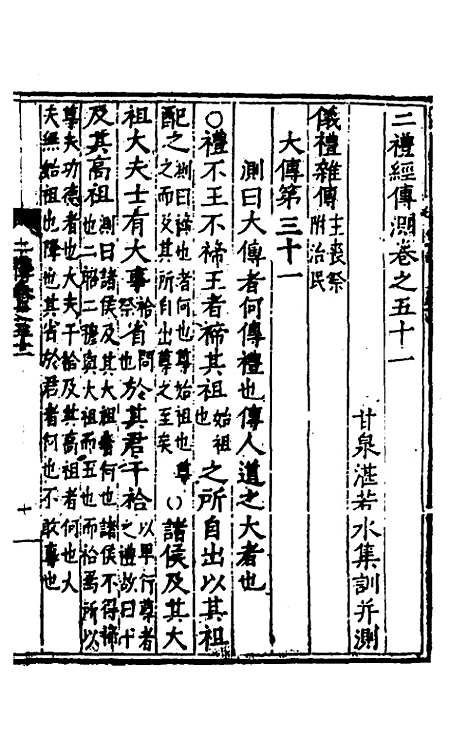 二禮經傳測卷之五十一
甘泉湛若水集訓并測
儀禮雜傳主喪祭附治民
大傳第三十一
測曰大傳者何傳禮也傳人道之大者也
○禮不王不禘王者禘其祖始祖也之所自出以其祖
配之測曰禘也者何也尊始祖也尊之而及其所自出尊之至矣○諸侯及其大
祖大夫士有大事祫祭也省問也於其君干祫以卑行尊者之禮故曰干
及其高祖測曰諸侯及其大祖者何也諸侯不得禘也二昭二穆與大祖而五也而祫焉所以
尊夫功德者也大夫干祫及其高祖者何也大夫無始祖也降也其省於君者何也不敢專也
十一